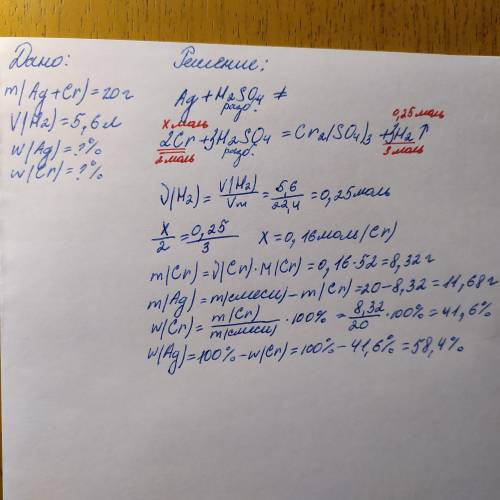 Дано:
m(Ag+Cr)=20г
V(H2)=5,6л
w(Ag)=?%
w(Cr)=?%
Решение:
Ag+H2SO4 ≠
разб.
x моль
0,25 моль
2Cr+3H2SO4=Cr2(SO4)3+3H2↑
2 моль
разб.
3 моль
ν(H2)=V(H2)/Vm=5,6/22,4=0,25моль
x/2=0,25/3 X=0,16моль(Cr)
m(Cr)=ν(Cr)·M(Cr)=0,16·52=8,32г
m(Ag)=m(смеси)-m(Cr)=20-8,32=11,68г
w(Cr)=m(Cr)/m(смеси)·100%=8,32/20·100%=41,6%
w(Ag)=100%-w(Cr)=100%-41,6%=58,4%